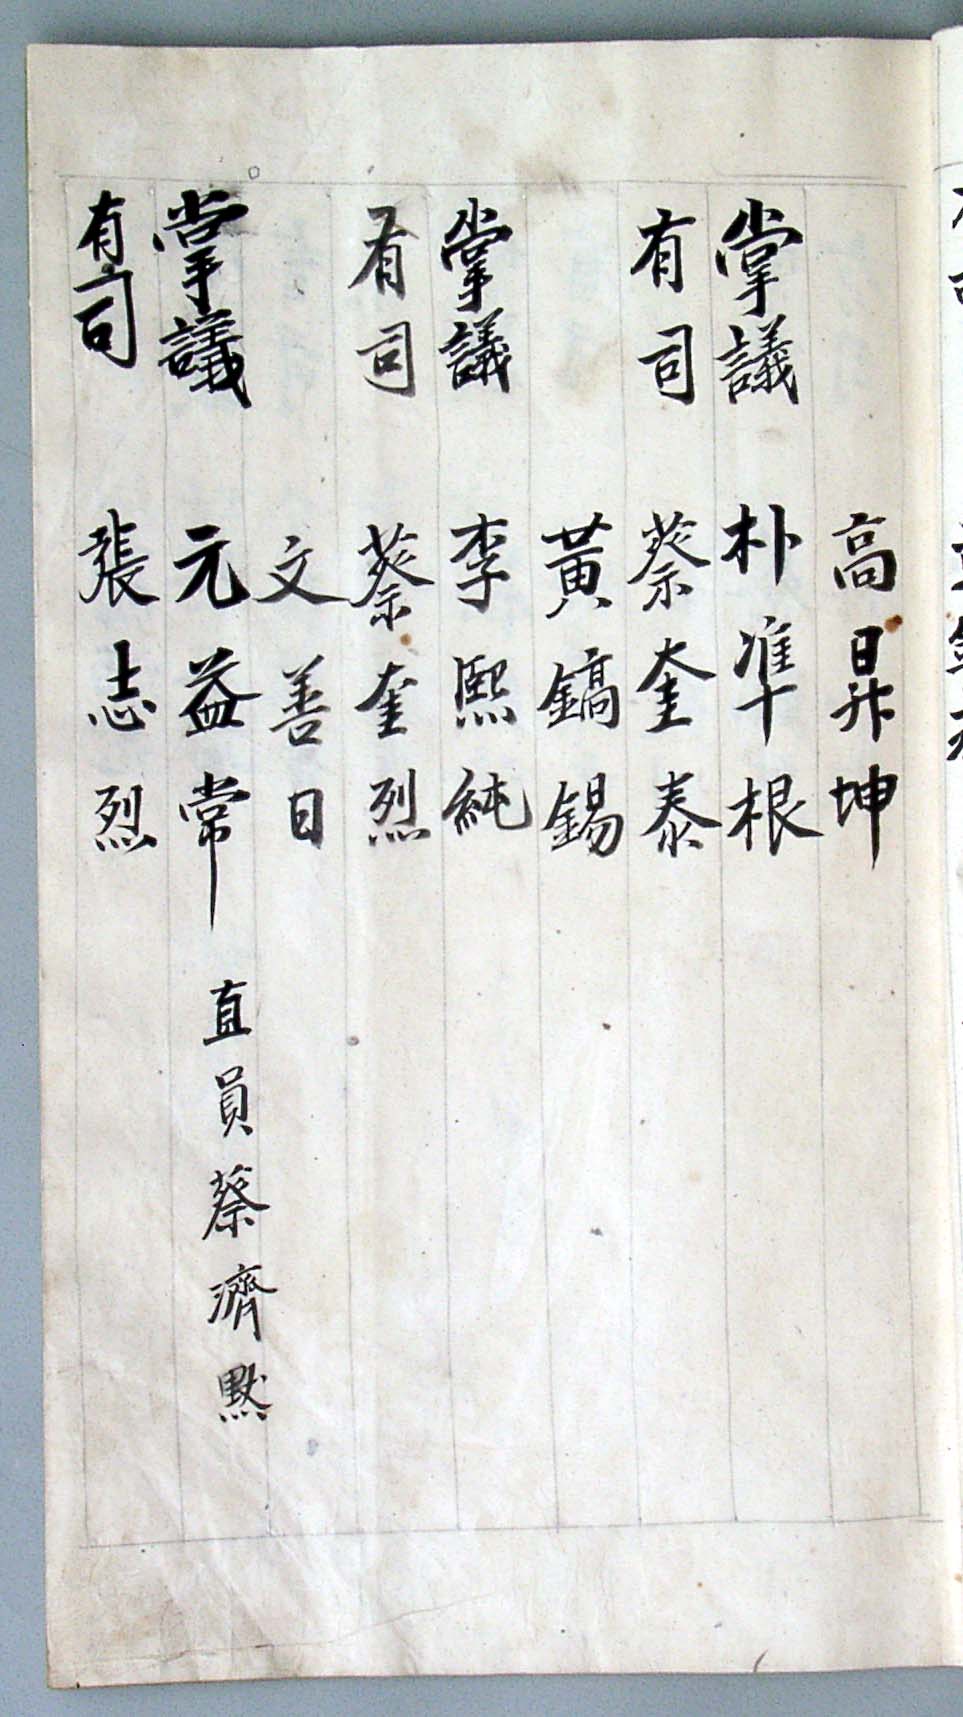 高昇坤
掌議 朴準根
有司 蔡奎泰
黃鎬錫
掌議 李熙純
有司 蔡奎烈
文善日
掌議 元益常 直員蔡濟默
有司 張志烈